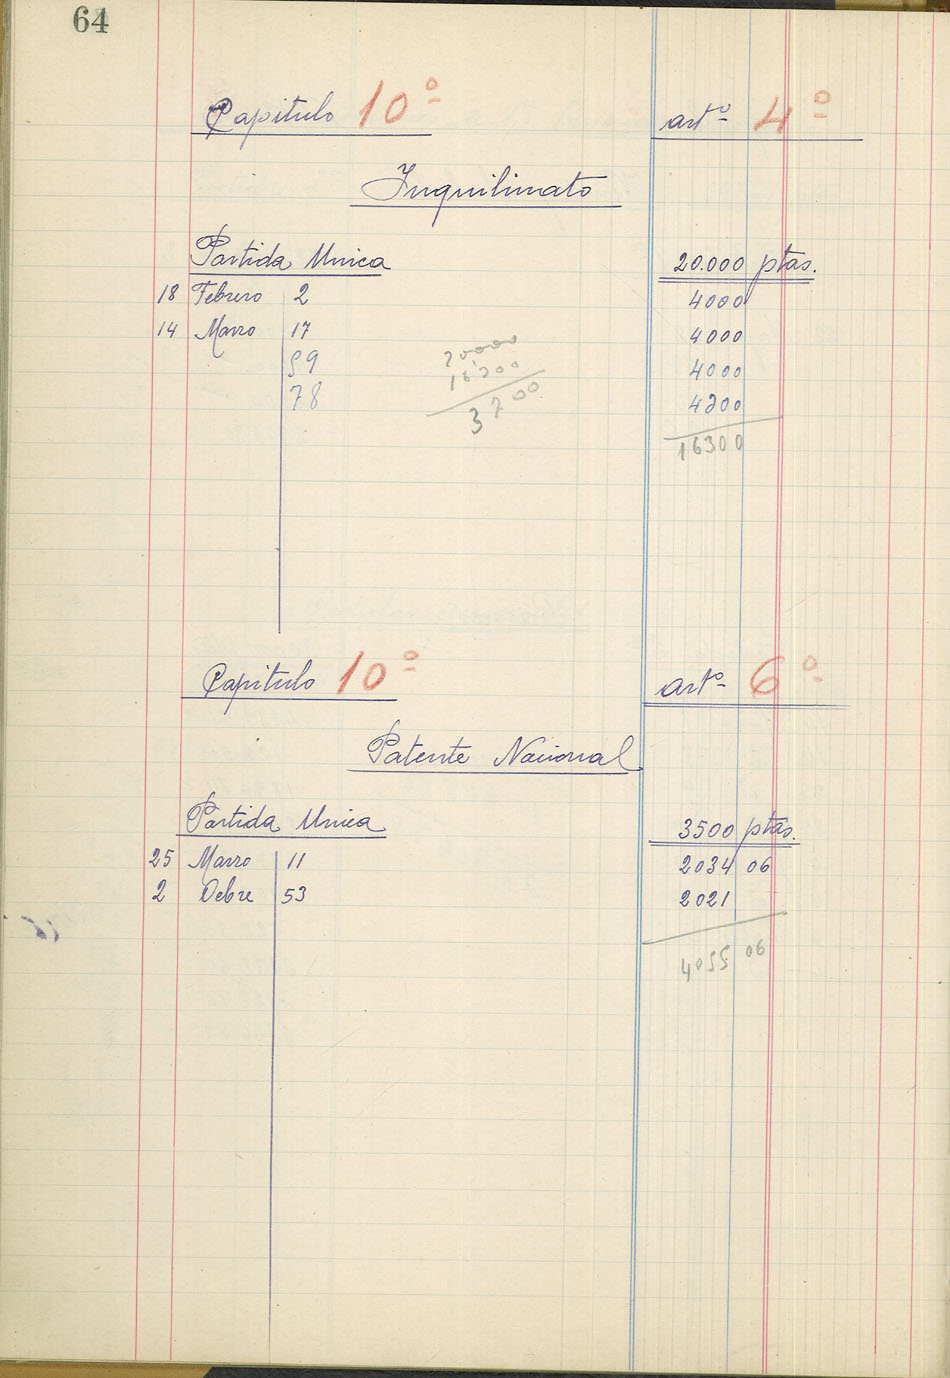 64
Capitulo 10º artº 4º
Inquilinato
Partida Unica 20.000 ptas.
18 Febrero 2 4000
14 Marzo 17 4000
59 4000
78 4300
16300
20000
16300
3700
Capitulo 10º artº 6º
Patente Nacional
Partida Unica 3500 ptas.
25 Marzo 11 2034 06
2 Dcbre 53 2021
4055 06